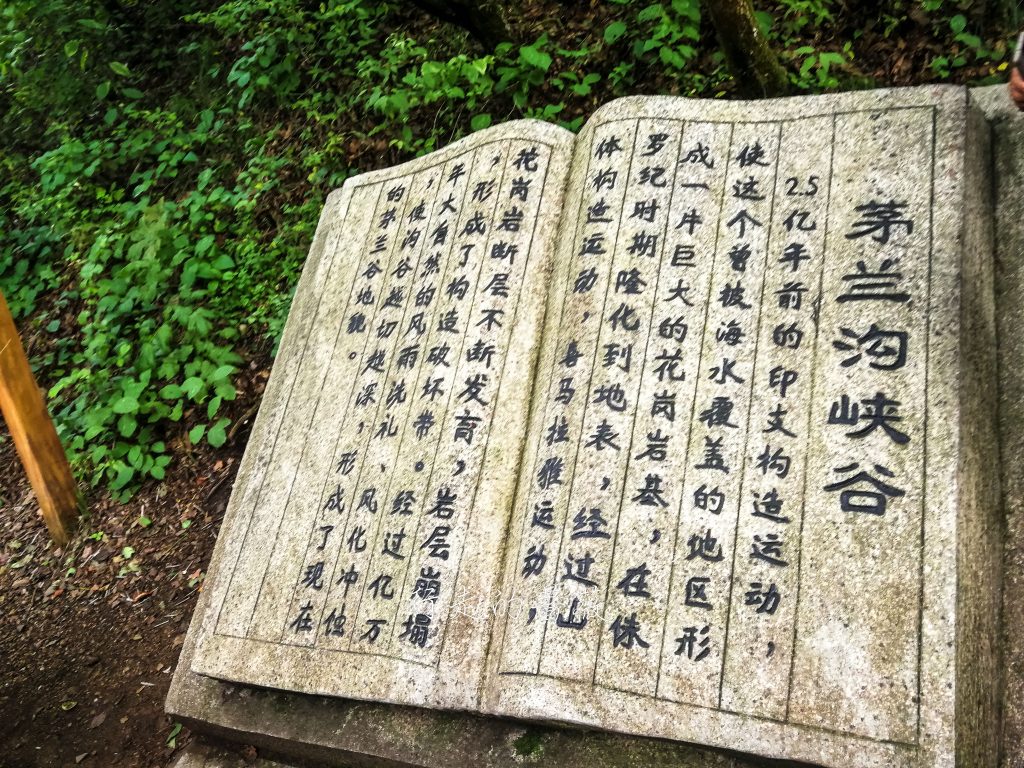 茅兰沟峡谷
2.5亿年前的印支构造运动，
使这个曾被海水覆盖的地区形
成一片巨大的花岗岩基；在侏
罗纪时期隆化到地表，经过山
体构造运动，喜马拉雅运动，
花岗岩断层不断发育，岩层崩塌
，形成了构造破坏带。经过亿万
年大自然的风雨洗礼、风化冲蚀
，使沟谷越切越深，形成了现在
的茅兰谷地貌。